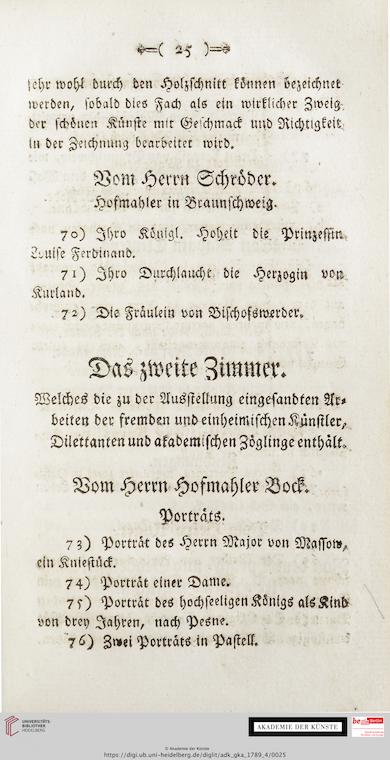 ( 25 )
ſehr wohl durch den Holzſchnitt können bezeichnet
werden, ſobald dies Fach als ein wirklicher Zweig
der ſchönen Künſte mit Geſchmack und Richtigkeit
in der Zeichnung bearbeitet wird.
Vom Herrn Schröder.
Hofmahler in Braunſchweig.
70) Ihro Königl. Hoheit die Prinzeſſin
Louiſe Ferdinand.
71) Ihro Durchlaucht die Herzogin von
Kurland.
72) Die Fräulein von Biſchofswerder.
Das zweite Zimmer.
Welches die zu der Ausſtellung eingeſandten Ar-
beiten der fremden und einheimiſchen Künſtler,
Dilettanten und akademiſchen Zöglinge enthält.
Vom Herrn Hofmahler Bock.
Porträts.
73) Porträt des Herrn Major von Maſſow,
ein Knieſtück.
74) Porträt einer Dame.
75) Porträt des hochſeeligen Königs als Kind
von drey Jahren, nach Pesne.
76) Zwei Porträts in Paſtell.
UNIVERSITÄTS-
BIBLIOTHEK
HEIDELBERG
AKADEMIE DER KÜNSTE
be Berlin
© Akademie der Künste
https://digi.ub.uni-heidelberg.de/diglit/adk_gka_1789_4/0025